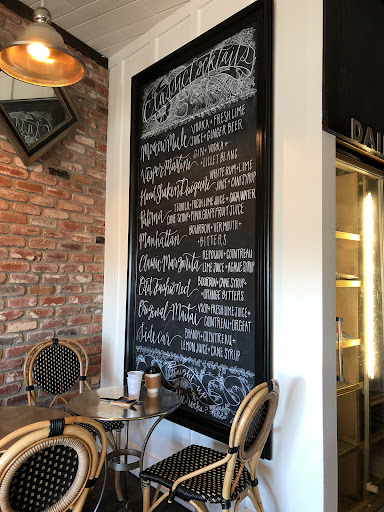 Classic Cocktails
Moscow Mule VODKA + FRESH LIME
JUICE + GINGER BEER
Vesper Martini GIN + VODKA +
LILLET BLANC
Hand Shaken Daiquiri WHITE RUM + LIME
JUICE + CANE SYRUP
Paloma TEQUILA + FRESH LIME JUICE + SODA WATER
CANE SYRUP + PINK GRAPEFRUIT JUICE
Manhattan BOURBON + VERMOUTH
+ BITTERS
Classic Margarita REPOSADO + COINTREAU
LIME JUICE + AGAVE SYRUP
Old Fashioned BOURBON + CANE SYRUP
+ ORANGE BITTERS
Original Maitai VSOP + FRESH LIME JUICE +
COINTREAU + ORGEAT
Side Car BRANDY + COINTREAU +
LEMON JUICE + CANE SYRUP
DAI